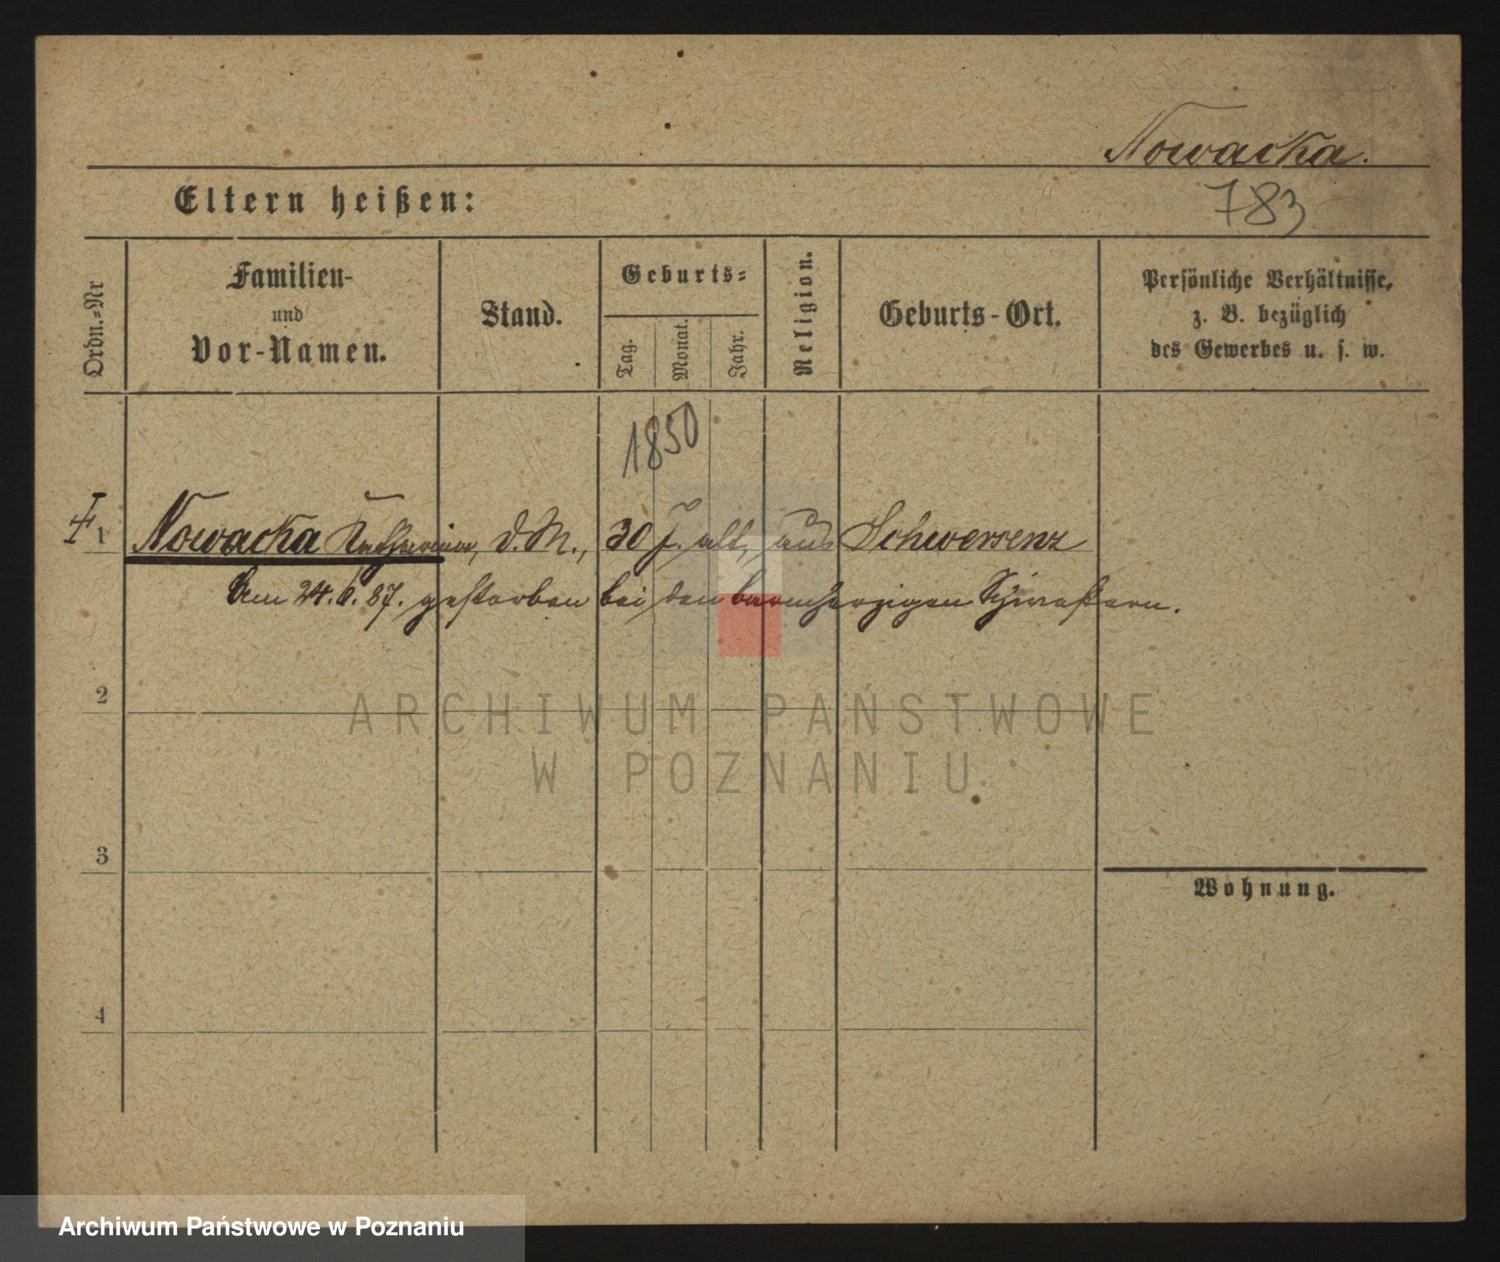 Nowacka.
Eltern heißen:
783
Ordn.=Nr
Familien-
und
Vor-Namen.
Stand.
Geburts=
Tag.
Monat.
Jahr.
Religion.
Geburts-Ort.
Persönliche Verhältnisse,
z. B. bezüglich
des Gewerbes u. s. w.
1850
1 Nowacka Katharina, d. M., 30 J. alt, aus Schwersenz
Am 24.6.87. gestorben bei den barmherzigen Schwestern.
2
ARCHIWUM PAŃSTWOWE
W POZNANIU
3
Wohnung.
4
Archiwum Państwowe w Poznaniu